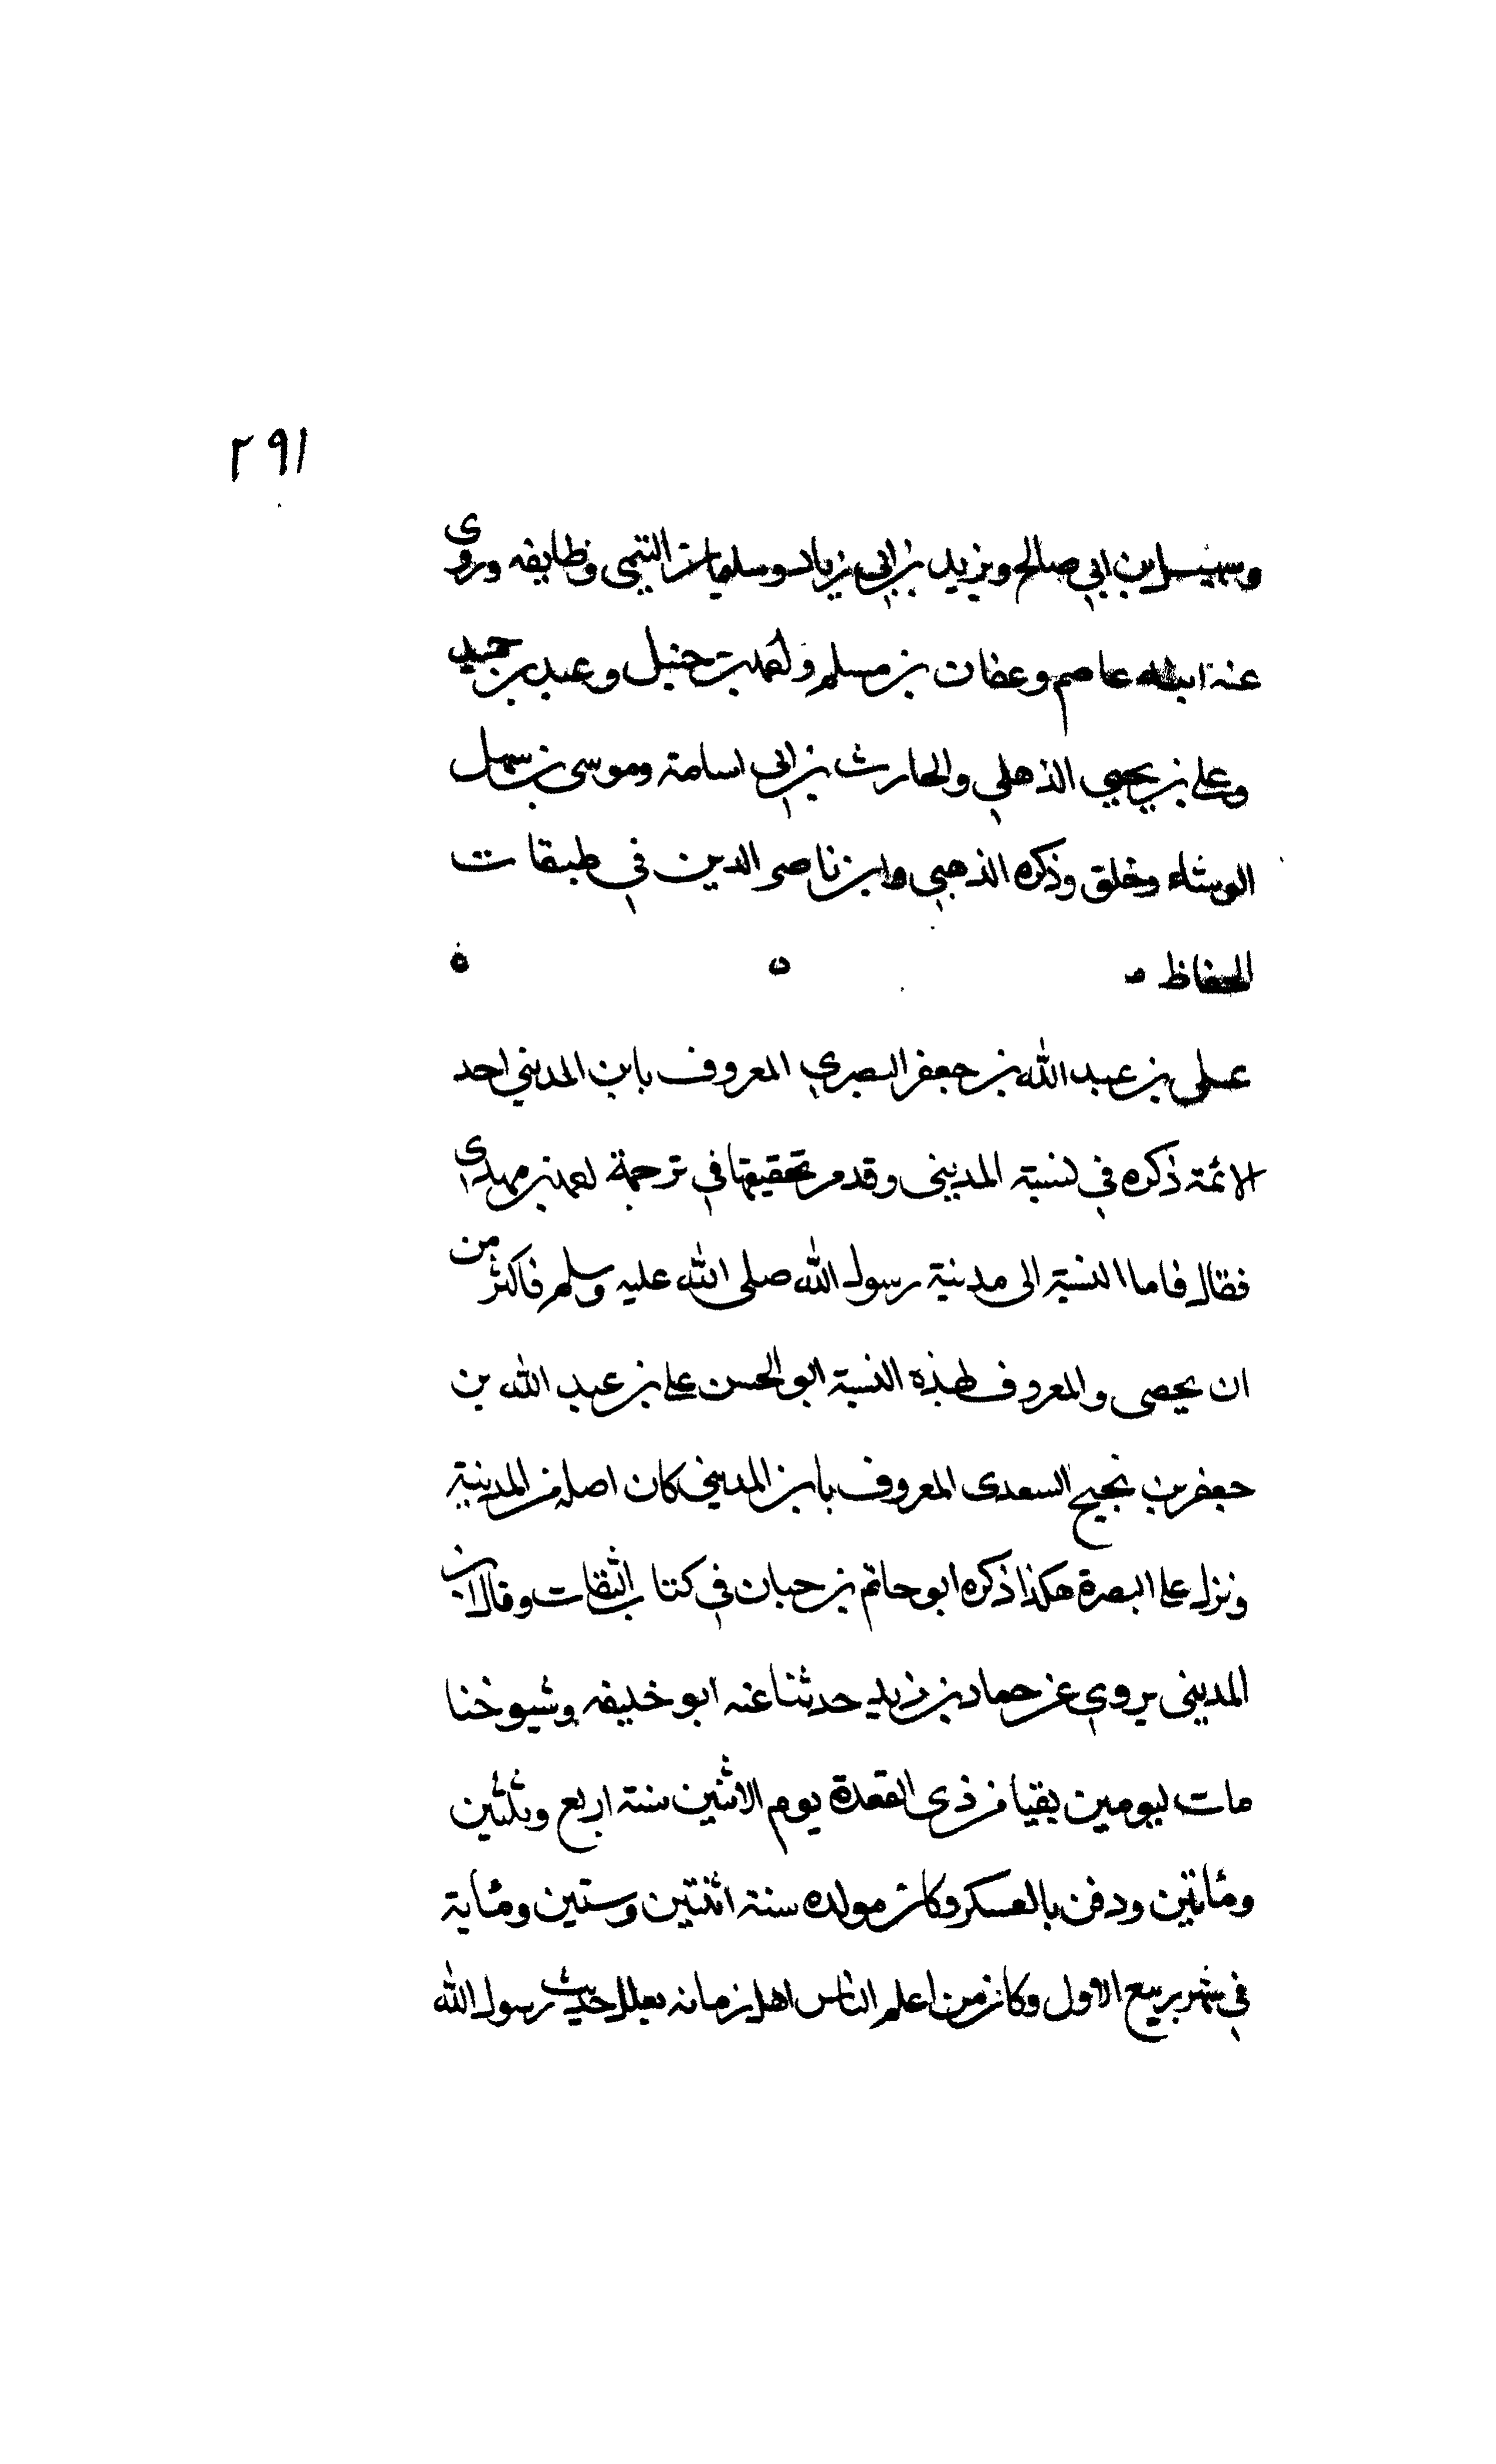 ٢٩١
وسهيل بن ابي صالح ويزيد بن ابي زياد وسليمان التيمي وطايفه وروى
عنه ابنه عاصم وعفان بن مسلم واحمد بن حنبل وعبد بن حميد
وعلي بن يحيى الذهلي والحارث بن ابي اسامة وموسى بن سهل
الوشاء وخلق وذكره الذهبي وابن ناصر الدين في طبقات
الحفاظ ه ه ه
علي بن عبد الله بن جعفر البصري المعروف بابن المديني احد
الائمة ذكره في نسبة المديني وقد مر تحقيقها في ترجمة احمد بن مهدي
فقال فاما النسبة الى مدينة رسول الله صلى الله عليه وسلم فاكثر من
ان يحصى والمعروف لهذه النسبة ابو الحسن علي بن عبد الله بن
جعفر بن نجيح السعدى المعروف بابن المديني كان اصله من المدينة
ونزل على البصرة هكذا ذكره ابو حاتم بن حبان في كتاب الثقات وقال ابن
المديني يروي عن حماد بن زيد حدثنا عنه ابو خليفه وشيوخنا
مات ليومين بقيا من ذى القعدة يوم الاثنين سنة اربع وثلثين
ومائتين ودفن بالعسكر وكان مولده سنة اثنتين وستين ومائة
في شهر ربيع الاول وكان من اعلم الناس اهل زمانه بعلل حديث رسول الله